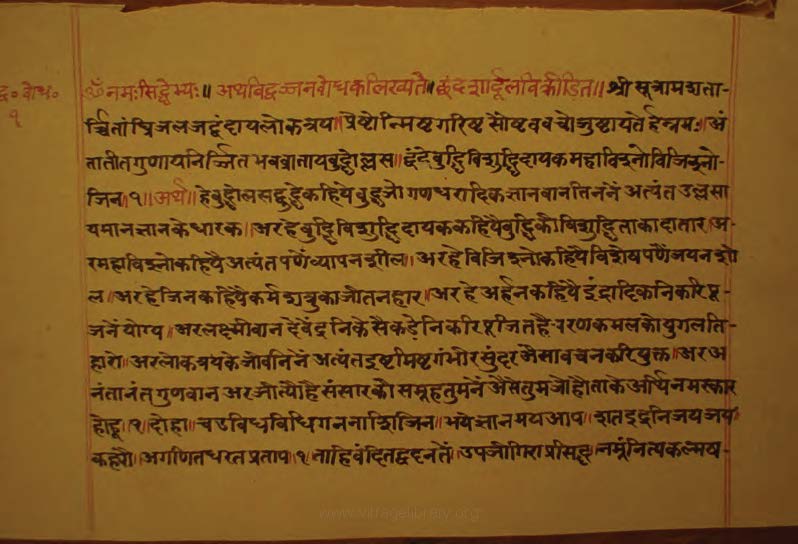 वृ॰ बोध॰
१
ॐ नमःसिद्धेभ्यः॥ अथविद्वज्जनबोधकलिख्यते॥ छंदशार्दूलविक्रीडित॥ श्रीसुत्रामशता-
र्च्चितांघ्रिजलजद्वंदायलोकत्रय॥ प्रेष्टोन्मिष्टगरिष्ट वचो अं
तातीतगुणायनिर्ज्जितभवव्राताय बुद्धिविशुद्धिदायक
जिन॥१॥अर्थ॥ कहिये गणधरादिकज्ञानवानतिननें अत्यंत उल्लसा
यमानज्ञानकेधारक॥ अरहेबुद्धिविशुद्धिदायककहियैबुद्धिकीविशुद्धिताकादातार॥अ-
रमहाविश्नोकहियैअत्यंतपणेंव्यापनशील॥ अरहेविजिश्नोकहियैविशेषपणेंजयनशी
ल॥ अरहेजिनकहियैकर्मशत्रुकाजीतनहार॥ अरहेअर्हनकहियैइंद्रादिकनिकरिपू-
जनेंयोग्य॥ अरलक्ष्मीवानदेवेंद्रनिकेसैकडेनिकरिपूजितहैचरणकमलकोयुगलति
हारो॥ अरलोकत्रयकेजीवनिनें अत्यंतइष्टमिष्टगंभीरसुंदरअैसावचनकरियुक्त॥ अरअ
नंतानंतगुणवान अरजीत्यौहैसंसारकोसमूहतुमनें अैसेतुमजोहौताकेअर्थिनमस्कार
होहू॥१॥दोहा॥ चउविधविधिगननाशिजिन॥ भयेज्ञानमयआप॥ शतइंद्रनिजयजय
कह्यौ॥ अगणितधरतप्रताप॥१॥ताहिवंदितद्वदनतें॥ उपजीगिराप्रसिद्ध॥ नमूंनित्यकल्मष-
www.vitragelibrary.org